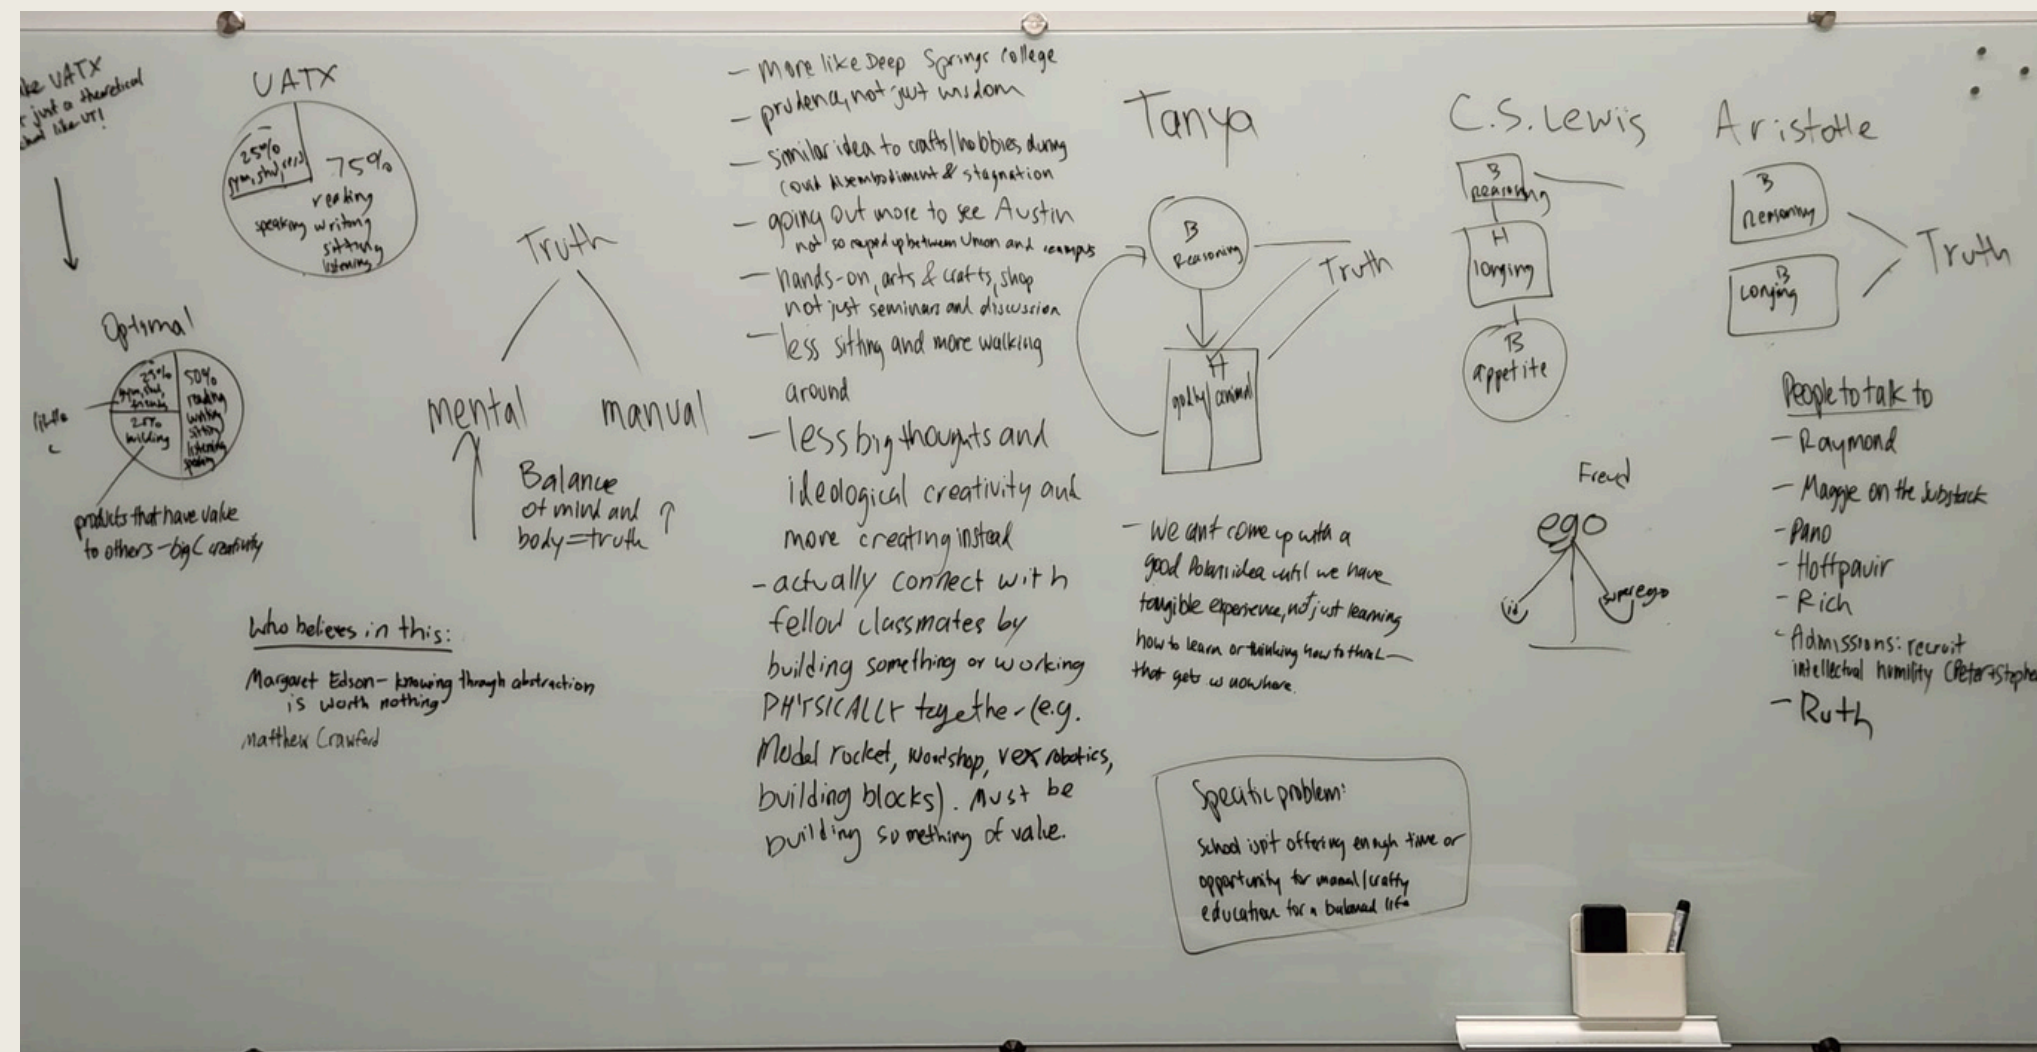 ke UATX
just a theoretical
like UT!
UATX
25%
gym, stud, rec
75%
reading
speaking writing
sitting
listening
Optimal
25%
gym, stud,
friends
50%
reading
writing
sitting
listening
speaking
25%
building
little
c
products that have value
to others - big C creativity
Truth
mental
manual
Balance
of mind and
body = truth
Who believes in this:
Margaret Edson - knowing through abstraction
is worth nothing
Matthew Crawford
- more like Deep Springs college
- prudence, not just wisdom
- similar idea to crafts/hobbies during
covid disembodiment & stagnation
- going out more to see Austin
not so roped up between Union and campus
- hands-on, arts & crafts, shop
not just seminars and discussion
- less sitting and more walking
around
- less big thoughts and
ideological creativity and
more creating instead
- actually connect with
fellow classmates by
building something or working
PHYSICALLY together (e.g.
Model rocket, woodshop, vex robotics,
building blocks). Must be
building something of value.
Tanya
B
Reasoning
Truth
H
godly
animal
- we cant come up with a
good Polaris idea until we have
tangible experience, not just learning
how to learn or thinking how to think -
that gets us nowhere.
Specific problem:
School isn't offering enough time or
opportunity for manual/crafty
education for a balanced life
C.S. Lewis
B
Reasoning
H
longing
B
appetite
Freud
ego
id
superego
Aristotle
B
Reasoning
B
Longing
Truth
People to talk to
- Raymond
- Maggie on the Substack
- Pano
- Hoffpauir
- Rich
- Admissions: recruit
intellectual humility (Peter + Stephe
- Ruth